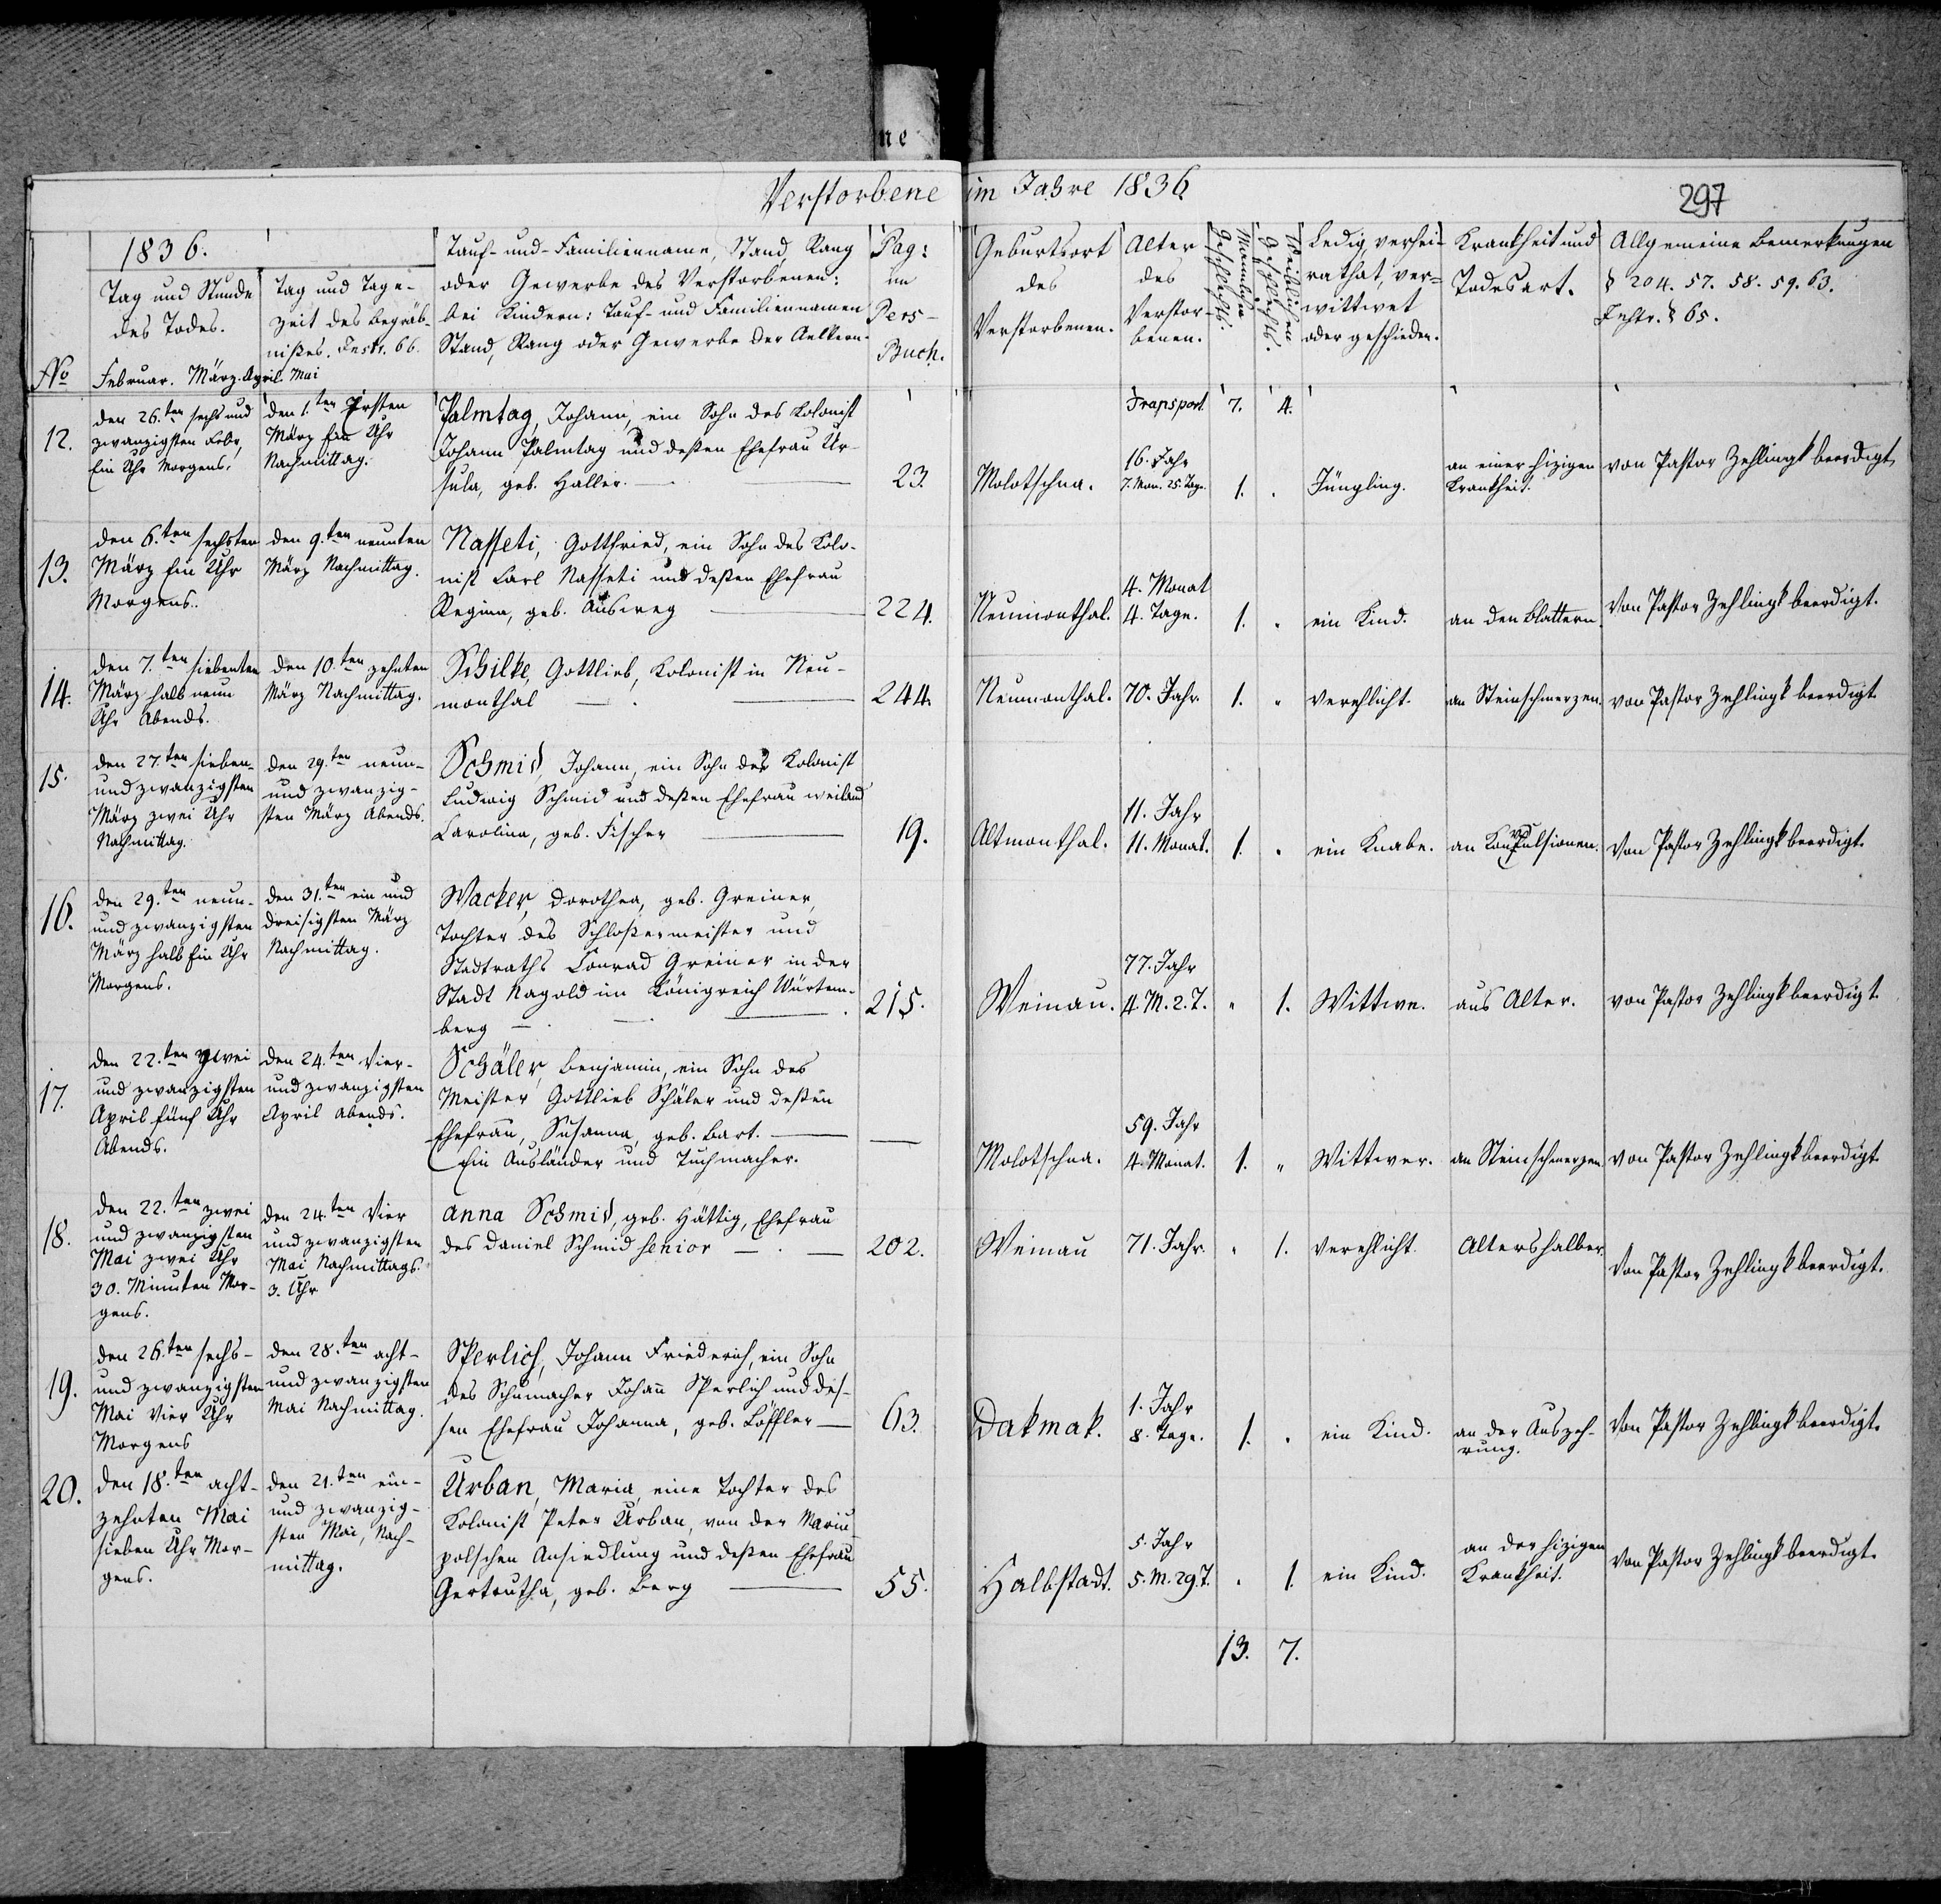 ne
Verstorbene im Jahre 1836
297
1836.
Tag und Stunde
des Todes.
Tag und Tage-
zeit des Begräb-
nißes. Instr. 66.
Tauf- und Familienname, Stand, Rang
oder Gewerbe des Verstorbenen:
bei Kindern: Tauf- und Familiennamen
Stand, Rang oder Gewerbe der Aeltern.
Pag:
im
Pers-
Buch.
Geburtsort
des
Verstorbenen.
Alter
des
Verstor-
benen.
Männlichen
Geschlechts.
Weiblichen
Geschlechts.
Ledig, verhei-
rathet, ver-
wittwet
oder geschieden.
Krankheit und
Todesart.
Allgemeine Bemerkungen
§ 204. 57. 58. 59. 63.
Instr. § 65.
No Februar. März. April. Mai
Transport. 7. 4.
12.
den 26.ten sechs und
zwanzigsten Febr,
Ein Uhr Morgens.
den 1.ten Ersten
März Ein Uhr
Nachmittag.
Palmtag, Johann, ein Sohn des Kolonist
Johann Palmtag und deßen Ehefrau Ur-
sula, geb. Haller.
23.
Molotschna.
16. Jahr
7. Mon. 25. Tage.
1.
Jüngling.
an einer hizigen
Krankheit.
von Pastor Zehlingk beerdigt
13.
den 6.ten sechsten
März Ein Uhr
Morgens.
den 9.ten neunten
März Nachmittag.
Nasseti, Gottfried, ein Sohn des Kolo-
nist Carl Nasseti und deßen Ehefrau
Regina, geb. Ausweg
224.
Neumonthal.
4. Monat
4. Tage.
1. "
ein Kind.
an den Blattern.
Von Pastor Zehlingk beerdigt.
14.
den 7.ten siebenten
März halb neun
Uhr Abends.
den 10.ten zehnten
März Nachmittag.
Schilke, Gottlieb, Kolonist in Neu-
monthal
244.
Neumonthal.
70. Jahr
1. "
verehlicht.
an Steinschmerzen.
von Pastor Zehlingk beerdigt
15.
den 27.ten sieben-
und zwanzigsten
März zwei Uhr
Nachmittag.
den 29.ten neun-
und zwanzig-
sten März Abends.
Schmid, Johann, ein Sohn des Kolonist
Ludwig Schmid und deßen Ehefrau weiland
Carolina, geb. Fischer
19.
Altmonthal.
11. Jahr
11. Monat.
1.
ein Knabe.
an Konvulsionen.
Von Pastor Zehlingk beerdigt.
16.
den 29.ten neun-
und zwanzigsten
März halb Ein Uhr
Morgens.
den 31.ten ein und
dreisigsten März
Nachmittag.
Wacker, Dorothea, geb. Greiner,
Tochter des Schloßermeister und
Stadtraths Conrad Greiner in der
Stadt Nagold im Königreich Würtem-
berg
215.
Weinau.
77. Jahr
4 M. 2. T.
" 1.
Wittwe.
aus Alter.
von Pastor Zehlingk beerdigt
17.
den 22.ten zwei
und zwanzigsten
April fünf Uhr
Abends.
den 24.ten Vier-
und zwanzigsten
April Abends.
Schäler, Benjamin, ein Sohn des
Meister Gottlieb Schäler und deßen
Ehefrau, Susanna, geb. Bart.
Ein Ausländer und Tuchmacher.
Molotschna.
59. Jahr
4. Monat.
1. "
Wittwer.
an Steinschmerzen.
von Pastor Zehlingk beerdigt
18.
den 22.ten zwei
und zwanzigsten
Mai zwei Uhr
30. Minuten Mor-
gens.
den 24.ten Vier
und zwanzigsten
Mai Nachmittags.
3. Uhr
Anna Schmid, geb. Hättig, Ehefrau
des Daniel Schmid senior
202.
Weinau
71. Jahr.
" 1.
verehlicht.
Altershalber.
Von Pastor Zehlingk beerdigt.
19.
den 26.ten sechs-
und zwanzigsten
Mai Vier Uhr
Morgens
den 28.ten acht-
und zwanzigsten
Mai Nachmittag.
Sperlich, Johann Friederich, ein Sohn
des Schumacher Johann Sperlich und des-
sen Ehefrau Johanna, geb. Löffler
63.
Dakmak.
1. Jahr
8. Tage.
1.
ein Kind.
an der Auszeh-
rung.
Von Pastor Zehlingk beerdigt.
20.
den 18.ten acht-
zehnten Mai
sieben Uhr Mor-
gens.
den 21.ten ein-
und zwanzig-
sten Mai, Nach-
mittag.
Urban, Maria, eine Tochter des
Kolonist Peter Urban, von der Mariu-
polschen Ansiedlung und deßen Ehefrau
Gertrutha, geb. Berg
55.
Halbstadt.
5. Jahr
5. M. 29. T.
1.
ein Kind.
an der hizigen
Krankheit.
Von Pastor Zehlingk beerdigt.
13. 7.